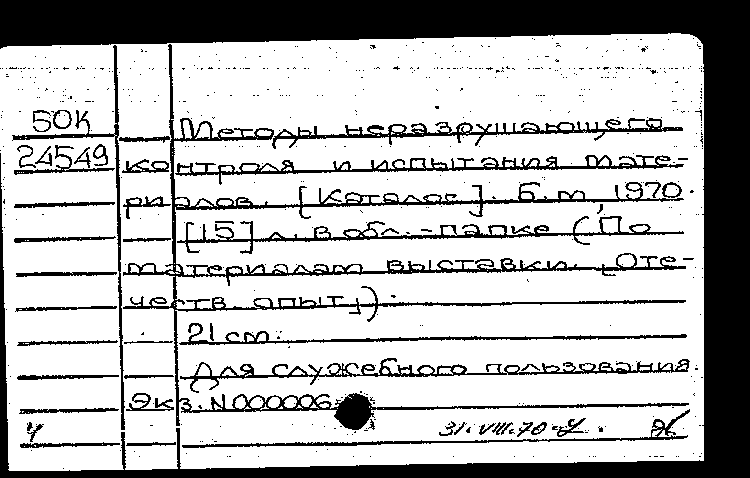 50К Методы неразрушающего
24549 контроля и испытания мате-
риалов. [Каталог]. Б.м, 1970.
[15] л. в обл.-папке (По
материалам выставки. „Оте-
честв. опыт„).
21 см.
Для служебного пользования.
Экз. N000006
4 31.VIII.70